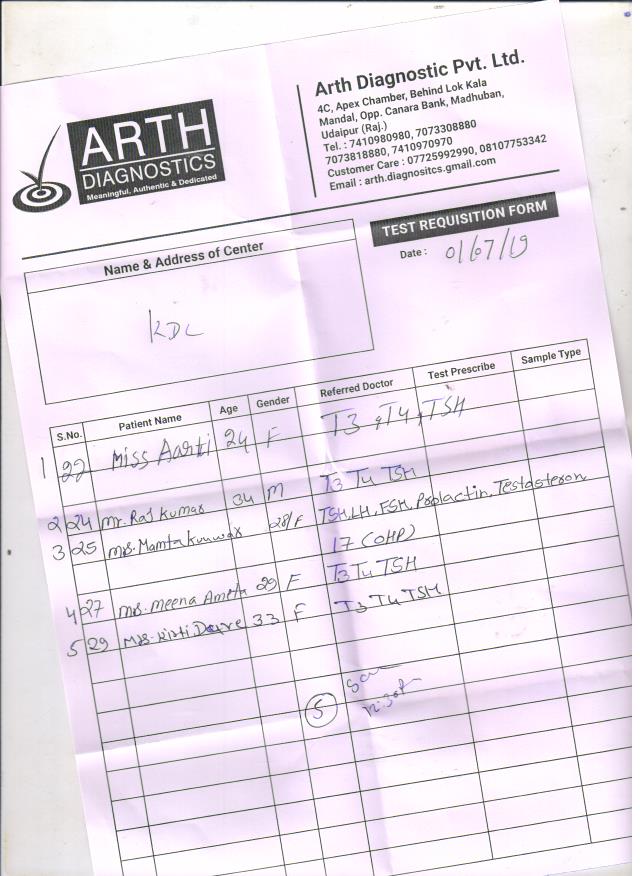 ARTH
DIAGNOSTICS
Meaningful, Authentic & Dedicated
Arth Diagnostic Pvt. Ltd.
4C, Apex Chamber, Behind Lok Kala
Mandal, Opp. Canara Bank, Madhuban,
Udaipur (Raj.)
Tel. : 7410980980, 7073308880
7073818880, 7410970970
Customer Care : 07725992990, 08107753342
Email : arth.diagnositcs.gmail.com
TEST REQUISITION FORM
Name & Address of Center
Date : 01/07/19
KDC
S.No. Patient Name Age Gender Referred Doctor Test Prescribe Sample Type
1 22 Miss Aarti 24 F T3, T4, TSH
2 24 Mr. Raj Kumar 34 M T3 T4 TSH
3 25 Mrs. Mamta Kunwar 28/F TSH, LH, FSH, Prolactin, Testasteron
17 (OHP)
4 27 Mrs. Meena Ameta 29 F T3 T4 TSH
5 29 Mrs. Kirti 33 F T3 T4 TSH
5